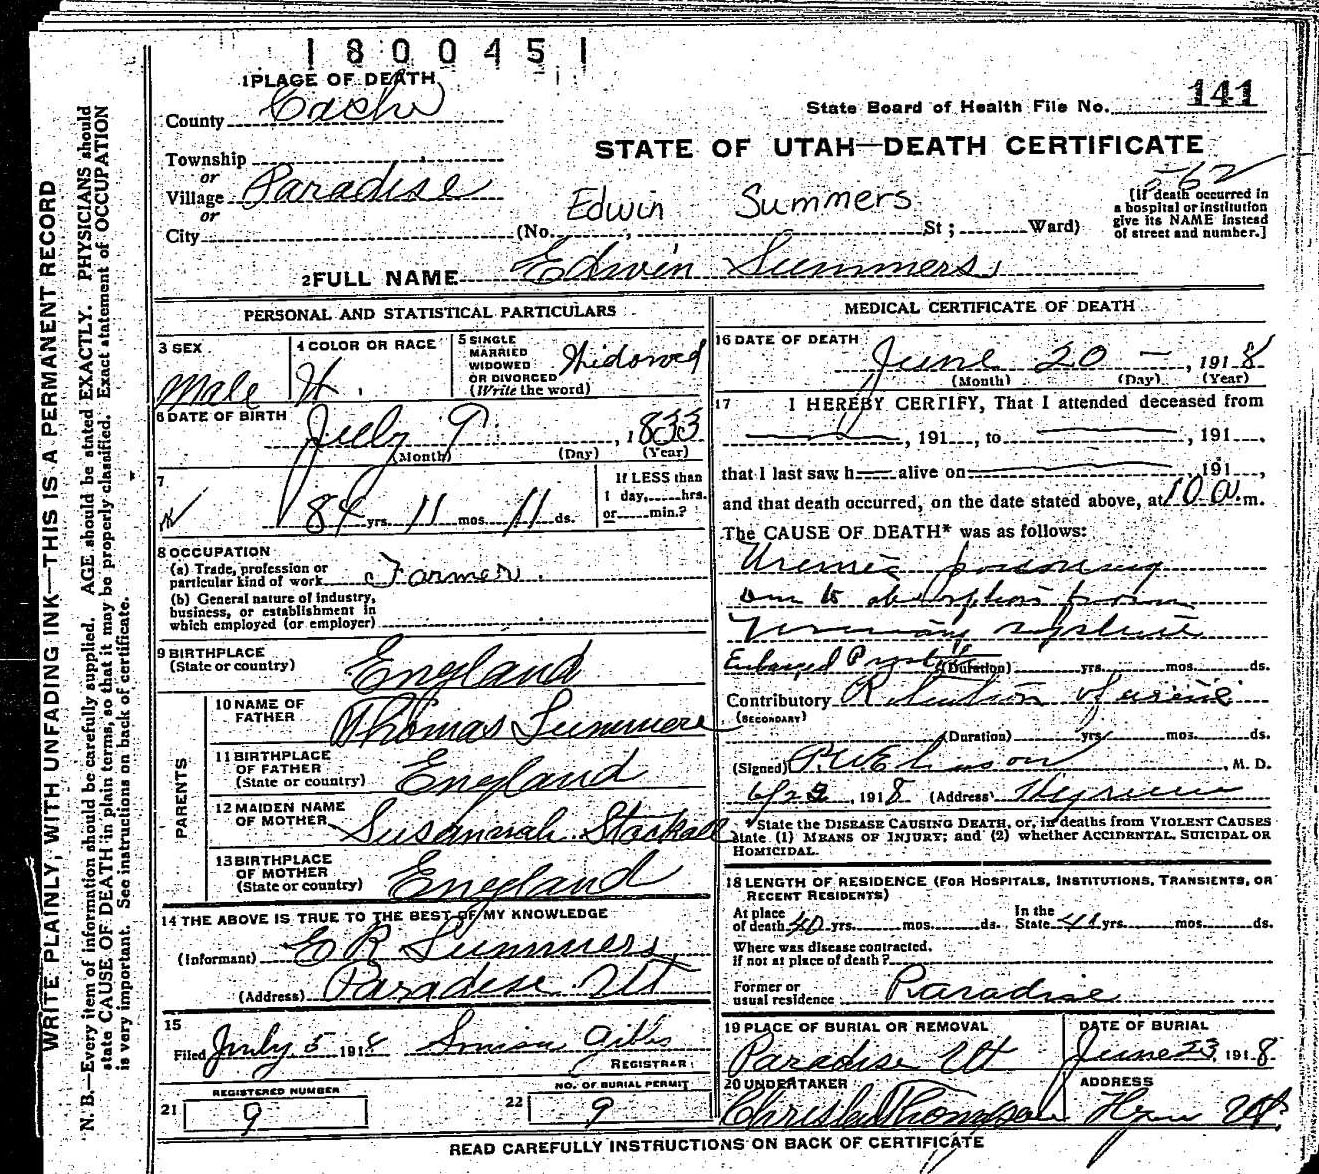 1800451
1 PLACE OF DEATH
County Cache
State Board of Health File No. 141
STATE OF UTAH—DEATH CERTIFICATE
Township
or
Village Paradise
or
City
562
[If death occurred in
a hospital or institution
give its NAME instead
of street and number.]
Edwin Summers
(No. , St ; Ward)
2 FULL NAME Edwin Summers
PERSONAL AND STATISTICAL PARTICULARS
3 SEX
Male
4 COLOR OR RACE
W.
5 SINGLE
MARRIED
WIDOWED
OR DIVORCED
(Write the word)
Widowed
6 DATE OF BIRTH
July 9 , 1833
(Month) (Day) (Year)
7
84 yrs. 11 mos. 11 ds.
If LESS than
1 day, hrs.
or min.?
8 OCCUPATION
(a) Trade, profession or
particular kind of work Farmer
(b) General nature of industry,
business, or establishment in
which employed (or employer)
9 BIRTHPLACE
(State or country) England
PARENTS
10 NAME OF
FATHER Thomas Summers
11 BIRTHPLACE
OF FATHER
(State or country) England
12 MAIDEN NAME
OF MOTHER Susannah
13 BIRTHPLACE
OF MOTHER
(State or country) England
14 THE ABOVE IS TRUE TO THE BEST OF MY KNOWLEDGE
(Informant) E R Summers
(Address) Paradise Ut
15
Filed July 5 1918 Gibbs
REGISTRAR
REGISTERED NUMBER
21 9
NO. OF BURIAL PERMIT
22 9
MEDICAL CERTIFICATE OF DEATH
16 DATE OF DEATH
June 20 , 1918
(Month) (Day) (Year)
17 I HEREBY CERTIFY, That I attended deceased from
, 191 , to , 191 ,
that I last saw h alive on , 191 ,
and that death occurred, on the date stated above, at 10 a.m.
The CAUSE OF DEATH* was as follows:
Uremic poisoning
due to absorption from
Enlarged (Duration) yrs. mos. ds.
Contributory Retention of urine
(SECONDARY)
(Duration) yrs. mos. ds.
(Signed) , M. D.
, 1918 (Address) Hyrum
*State the DISEASE CAUSING DEATH, or, in deaths from VIOLENT CAUSES
state (1) MEANS OF INJURY; and (2) whether ACCIDENTAL, SUICIDAL OR
HOMICIDAL.
18 LENGTH OF RESIDENCE (FOR HOSPITALS, INSTITUTIONS, TRANSIENTS, OR
RECENT RESIDENTS)
At place
of death 40 yrs. mos. ds.
In the
State yrs. mos. ds.
Where was disease contracted.
if not at place of death?
Former or
usual residence Paradise
19 PLACE OF BURIAL OR REMOVAL
Paradise Ut
DATE OF BURIAL
June 23 1918
20 UNDERTAKER
Thompson
ADDRESS
READ CAREFULLY INSTRUCTIONS ON BACK OF CERTIFICATE
WRITE PLAINLY, WITH UNFADING INK—THIS IS A PERMANENT RECORD
N. B.—Every item of information should be carefully supplied. AGE should be stated EXACTLY. PHYSICIANS should
state CAUSE OF DEATH in plain terms, so that it may be properly classified. Exact statement of OCCUPATION
is very important. See instructions on back of certificate.